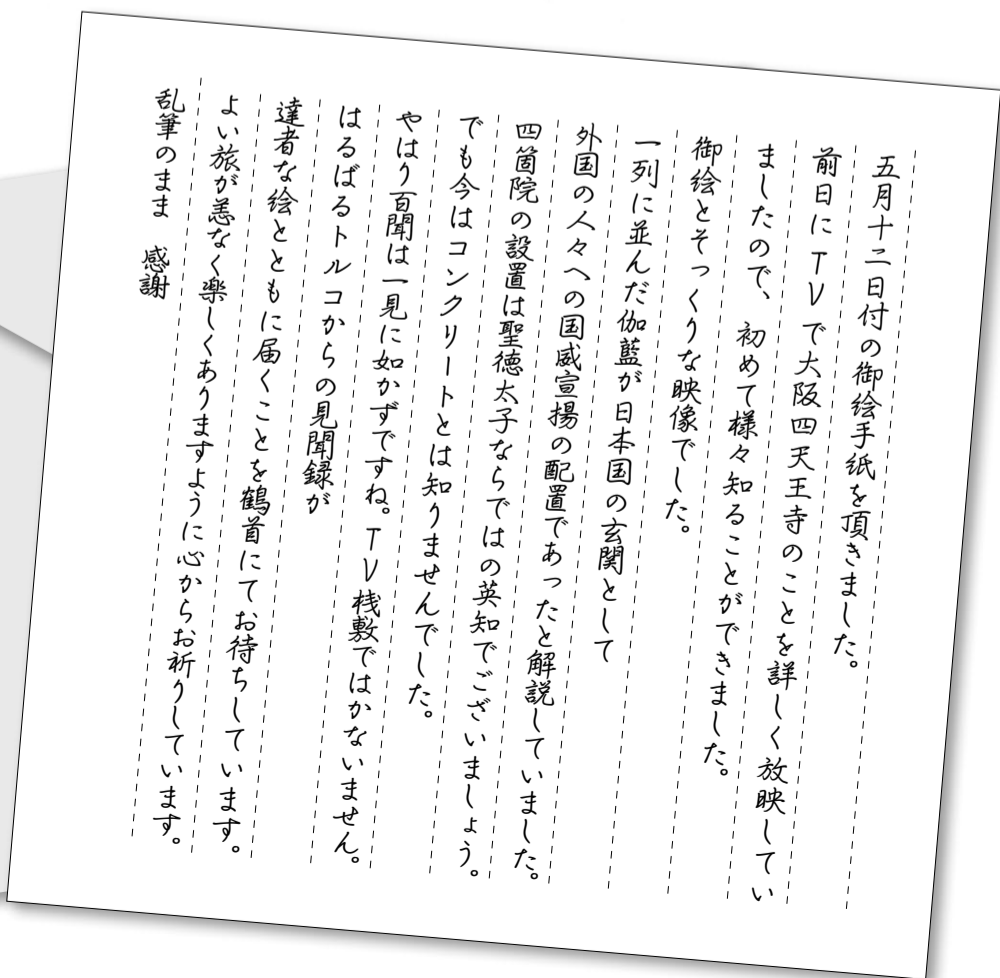 五月十二日付の御絵手紙を頂きました。
前日にTVで大阪四天王寺のことを詳しく放映してい
ましたので、初めて様々知ることができました。
御絵とそっくりな映像でした。
一列に並んだ伽藍が日本国の玄関として
外国の人々への国威宣揚の配置であったと解説していました。
四箇院の設置は聖徳太子ならではの英知でございましょう。
でも今はコンクリートとは知りませんでした。
やはり百聞は一見に如かずですね。TV桟敷ではかないません。
はるばるトルコからの見聞録が
達者な絵とともに届くことを鶴首にてお待ちしています。
よい旅が恙なく楽しくありますように心からお祈りしています。
乱筆のまま 感謝